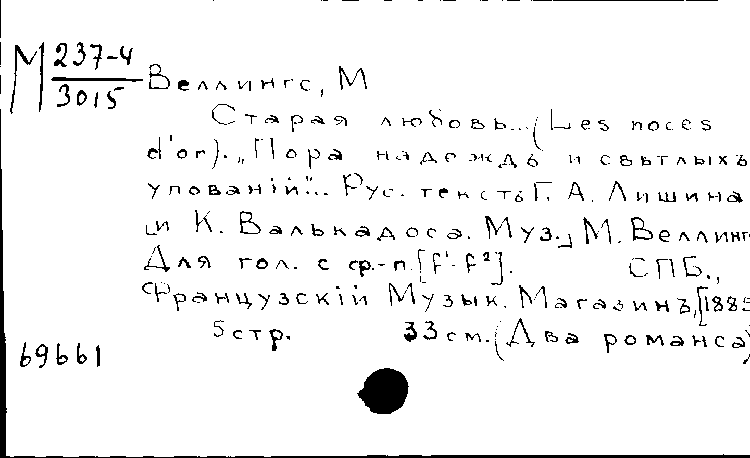 М 237-4
3015
Веллингс, М
Старая любовь... (Les noces
d'or). „Пора надеждъ и свѣтлыхъ
упованій"... Рус. текстъ Г. А. Лишина
и К. Валькадоса. Муз., М. Веллинг
Для гол. с ф.-п. [f¹-f²]. СПБ.,
Французскій Музык. Магазинъ, [1885
5 стр. 33 см. (Два романса)
69661